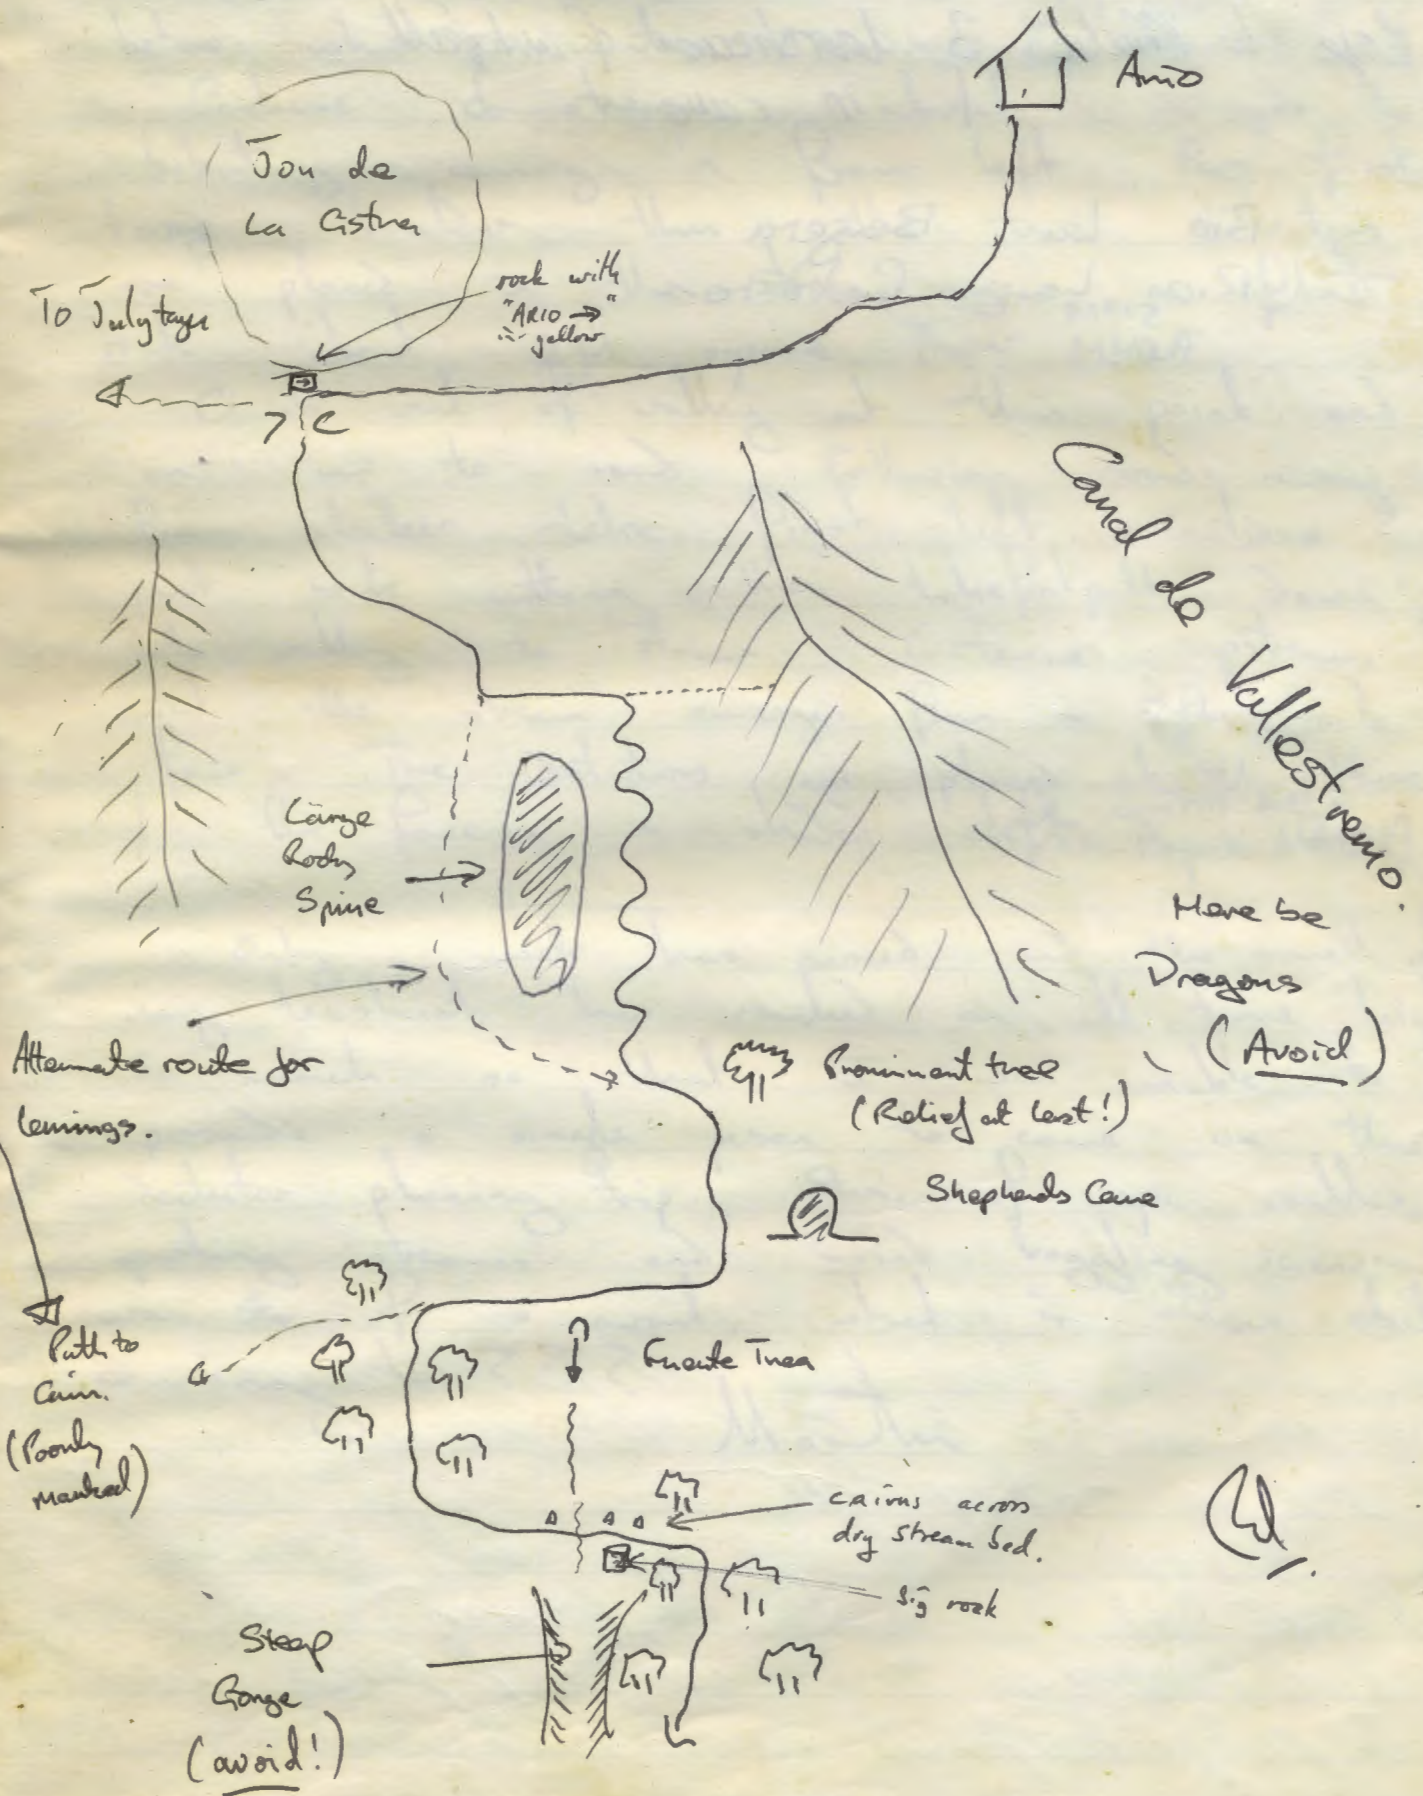 Ario
Jou de
La Cistra
To Julytayu
rock with
"ARIO →"
in yellow
Canal de Vallestremo.
Large
Rocky
Spine
Here be
Dragons
(Avoid)
Alternate route for
lemings.
Prominent tree
(Relief at last!)
Shepherds Cave
Path to
Cain.
(Poorly
marked)
Fuente Trea
cairns across
dry stream bed.
big rock
Steep
Gorge
(avoid!)